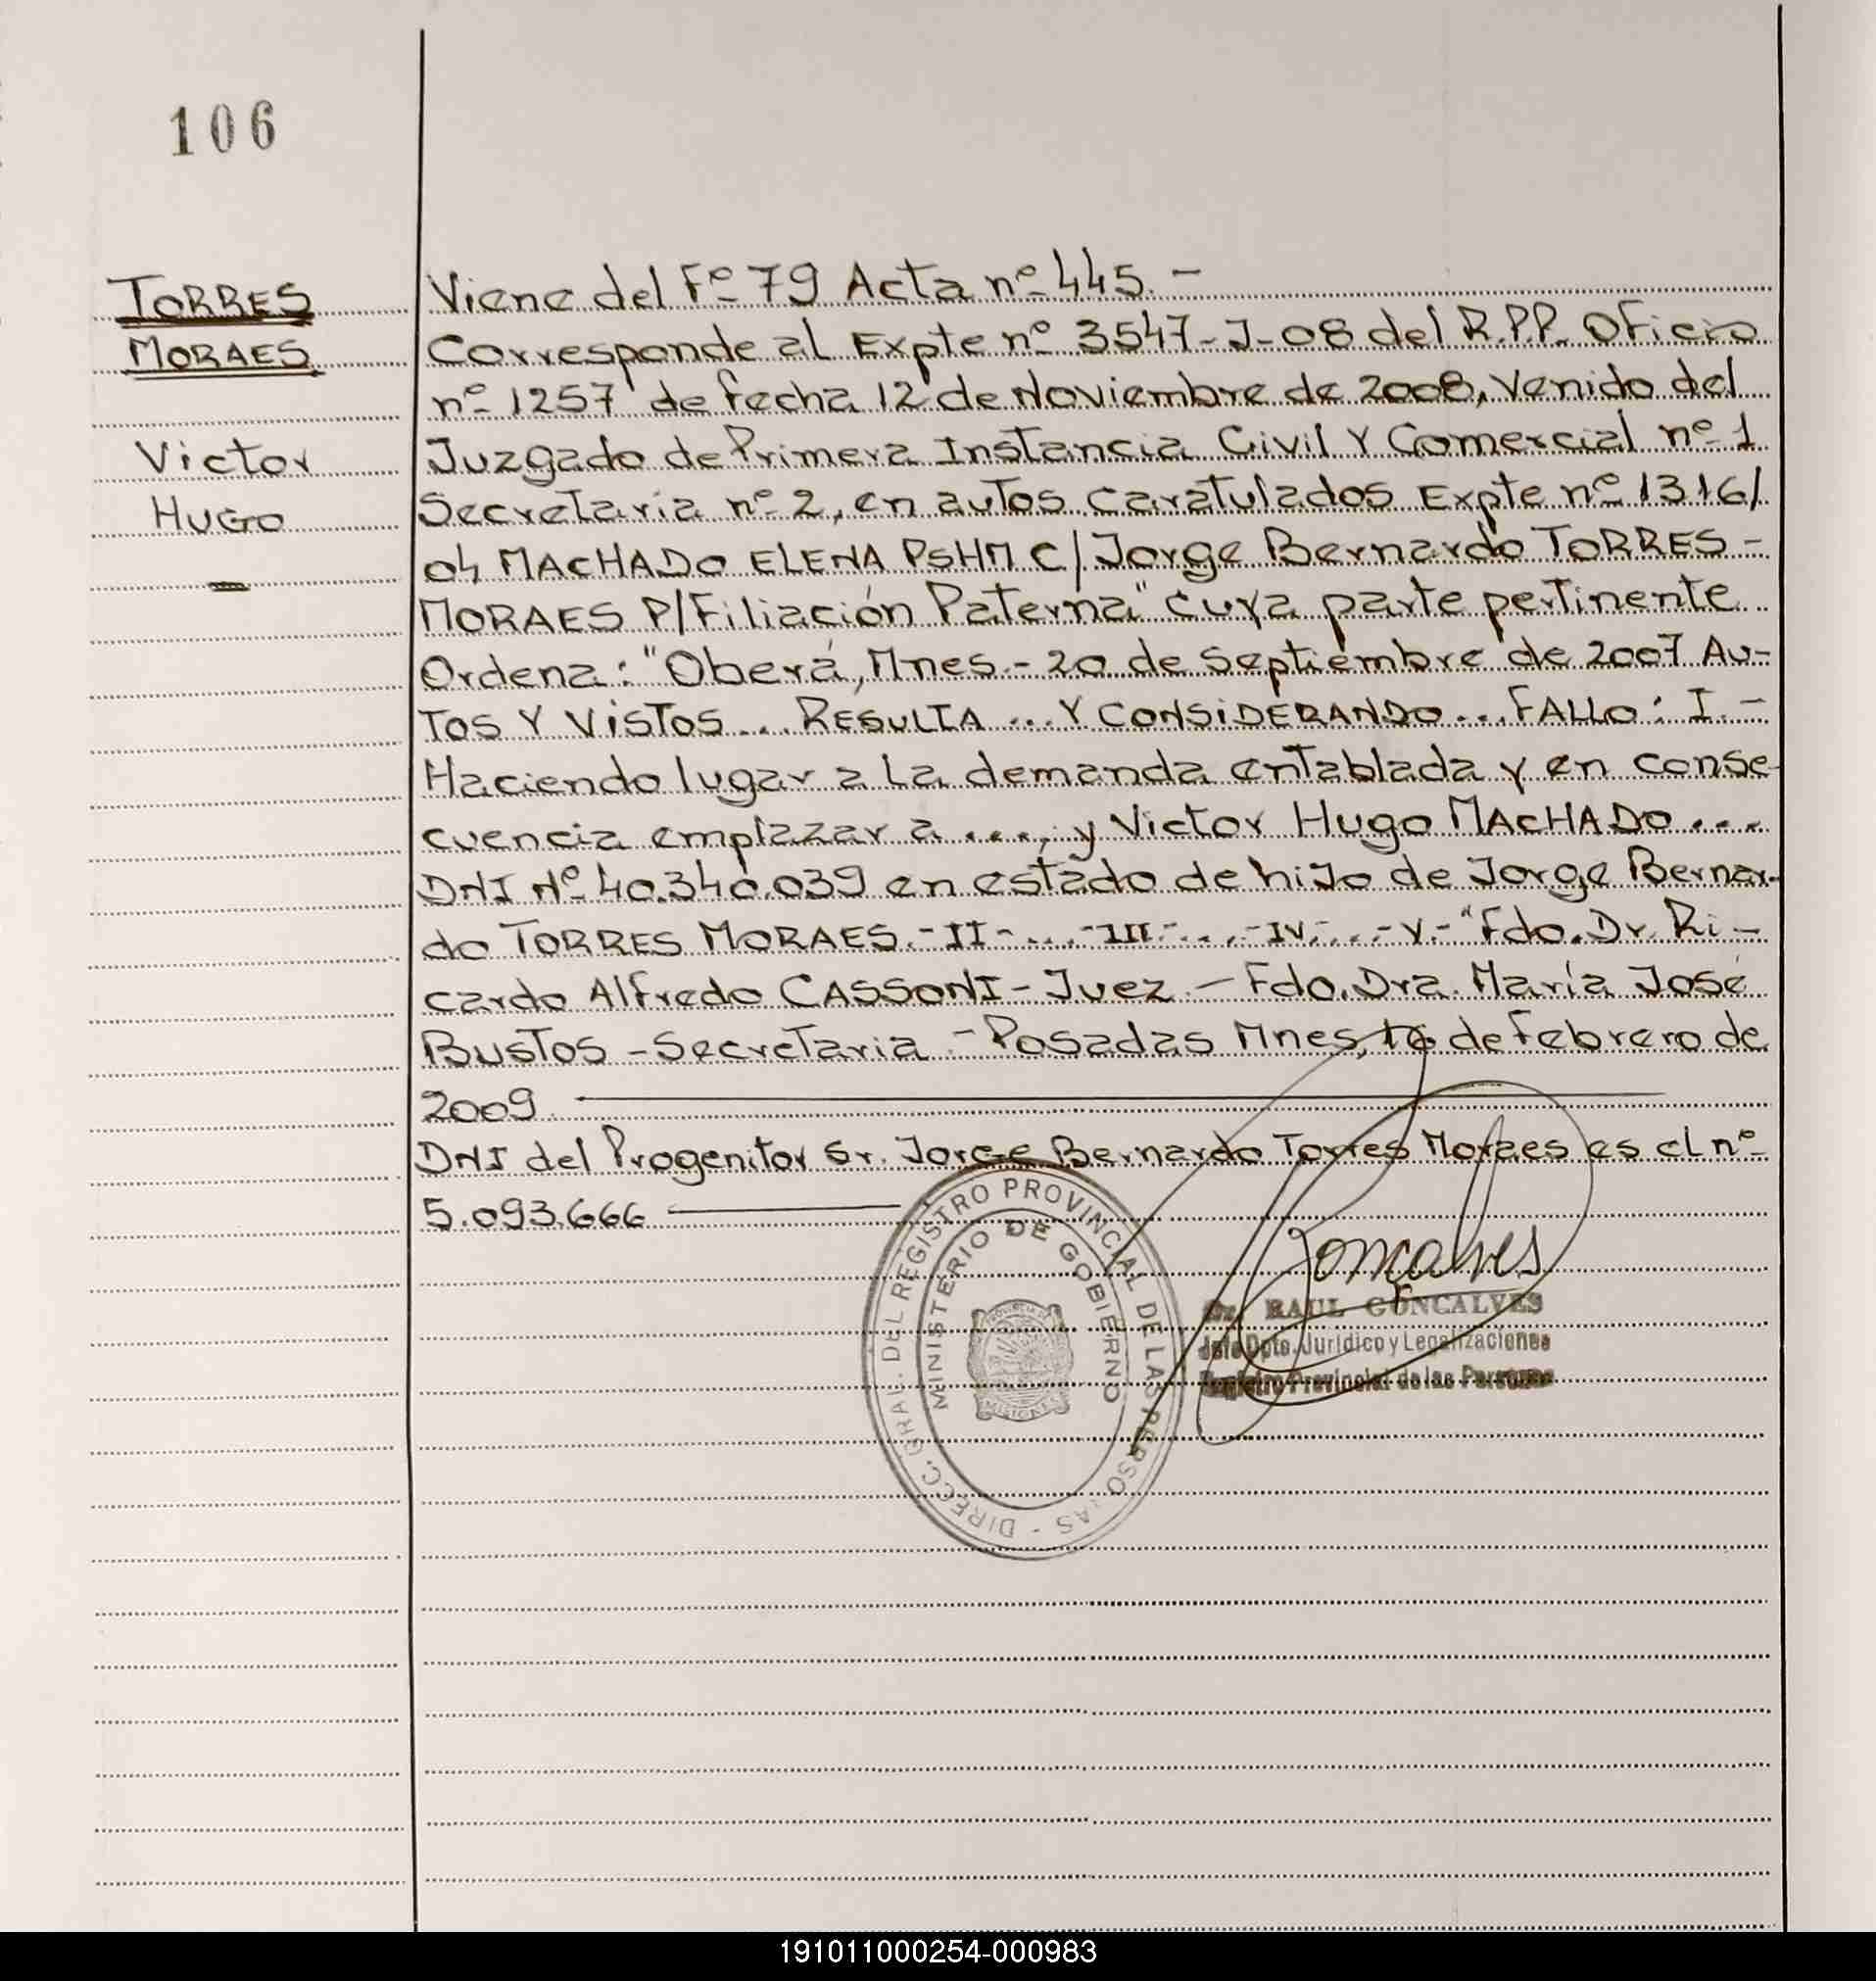 106
TORRES
MORAES
Victor
HUGO
Viene del Fº 79 Acta nº 445.-
Corresponde al Expte nº 3547-J-08 del R.P.P. Oficio
nº 1257 de fecha 12 de Noviembre de 2008, Venido del
Juzgado de Primera Instancia Civil Y Comercial nº 1
Secretaría nº 2, en autos caratulados Expte nº 1316/
04 MACHADO ELENA PSHM C/ Jorge Bernardo TORRES -
MORAES P/Filiación Paterna" cuya parte pertinente
Ordena: "Oberá, Mnes.- 20 de Septiembre de 2007 AU-
TOS Y VISTOS... RESULTA ... Y CONSIDERANDO... FALLO: I.-
Haciendo lugar a la demanda entablada y en conse-
cuencia emplazar a ...., y Victor Hugo MACHADO ...
DNI Nº 40.340.039 en estado de hijo de Jorge Bernar-
do TORRES MORAES.-II-...-III-...-IV-...-V.-"Fdo. Dr. Ri-
cardo Alfredo CASSONI - Juez.- Fdo. Dra. María José
BUSTOS - Secretaria.- Posadas Mnes, de Febrero de
2009.
DNI del Progenitor Sr. Jorge Bernardo Torres Moraes es el nº
5.093.666
DIRECC. GRAL. DEL REGISTRO PROVINCIAL DE LAS PERSONAS -
MINISTERIO DE GOBIERNO
MISIONES
Gonçalves
Dr. RAUL GONCALVES
Jefe Dpto. Jurídico y Legalizaciones
Registro Provincial de las Personas
191011000254-000983